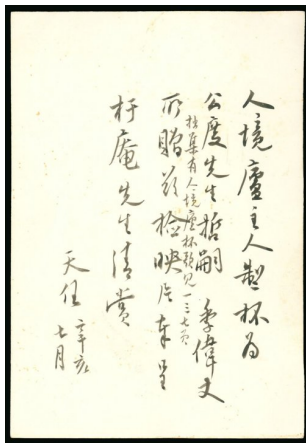 人境廬主人製杯為
公度先生哲嗣 季偉丈
拙集有人境廬杯歌見一三七頁
所贈茲檢映片奉呈
杍庵先生清賞
天任 辛亥
七月